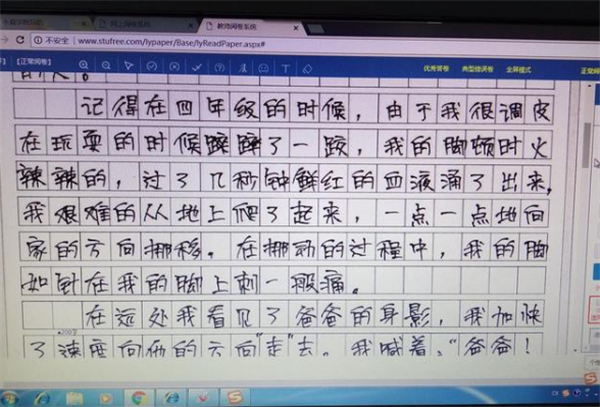 教师阅卷系统
不安全 www.stufree.com/lypaper/Base/lyReadPaper.aspx#
【正常阅卷】 优秀答卷 典型错误卷 全屏模式 正常阅
记得在四年级的时候，由于我很调皮
在玩耍的时候蹿蹿了一跤，我的脚顿时火
辣辣的，过了几秒钟鲜红的血液涌了出来，
我艰难的从地上爬了起来，一点一点地向
家的方向挪移。在挪动的过程中，我的脚
如针在我的脚上刺一般痛。
在远处我看见了爸爸的身影，我加快
了速度向他的方向"走"去。我喊着，"爸爸！